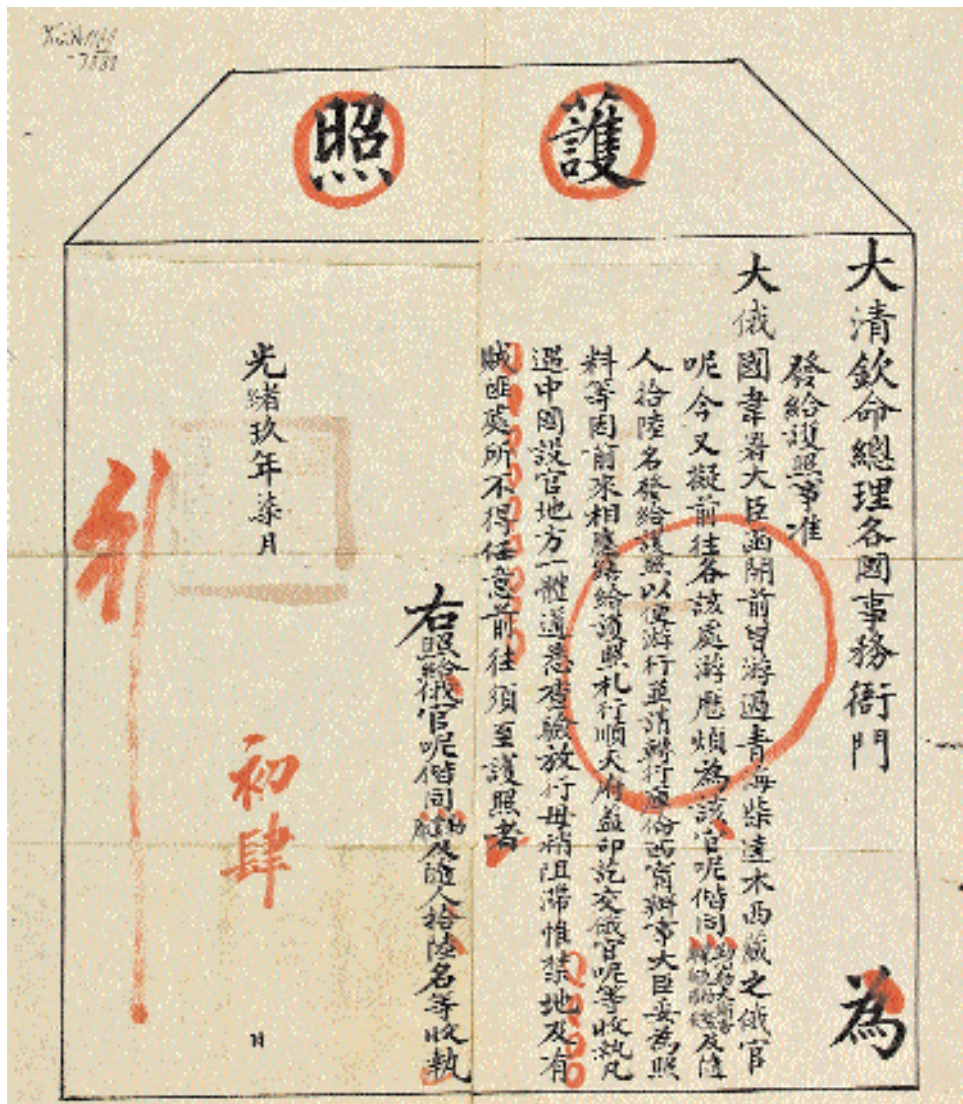 護照
大清欽命總理各國事務衙門 為
發給護照事准
大俄國韋署大臣函開前曾游過青海柴達木西藏之俄官
呢今又擬前往各該處游歷煩為該官呢偕同 及隨
人拾陸名發給護照以便游行並請轉行 西甯辦事大臣妥為照
料等因前來相應繕給護照札行順天府蓋印訖交俄官呢等收執凡
過中國設官地方一體遵悉查驗放行毋稍阻滯惟禁地及有
賊匪處所不得任意前往須至護照者
右照給俄官呢偕同 及隨人拾陸名等收執
光緒玖年柒月 初肆 日